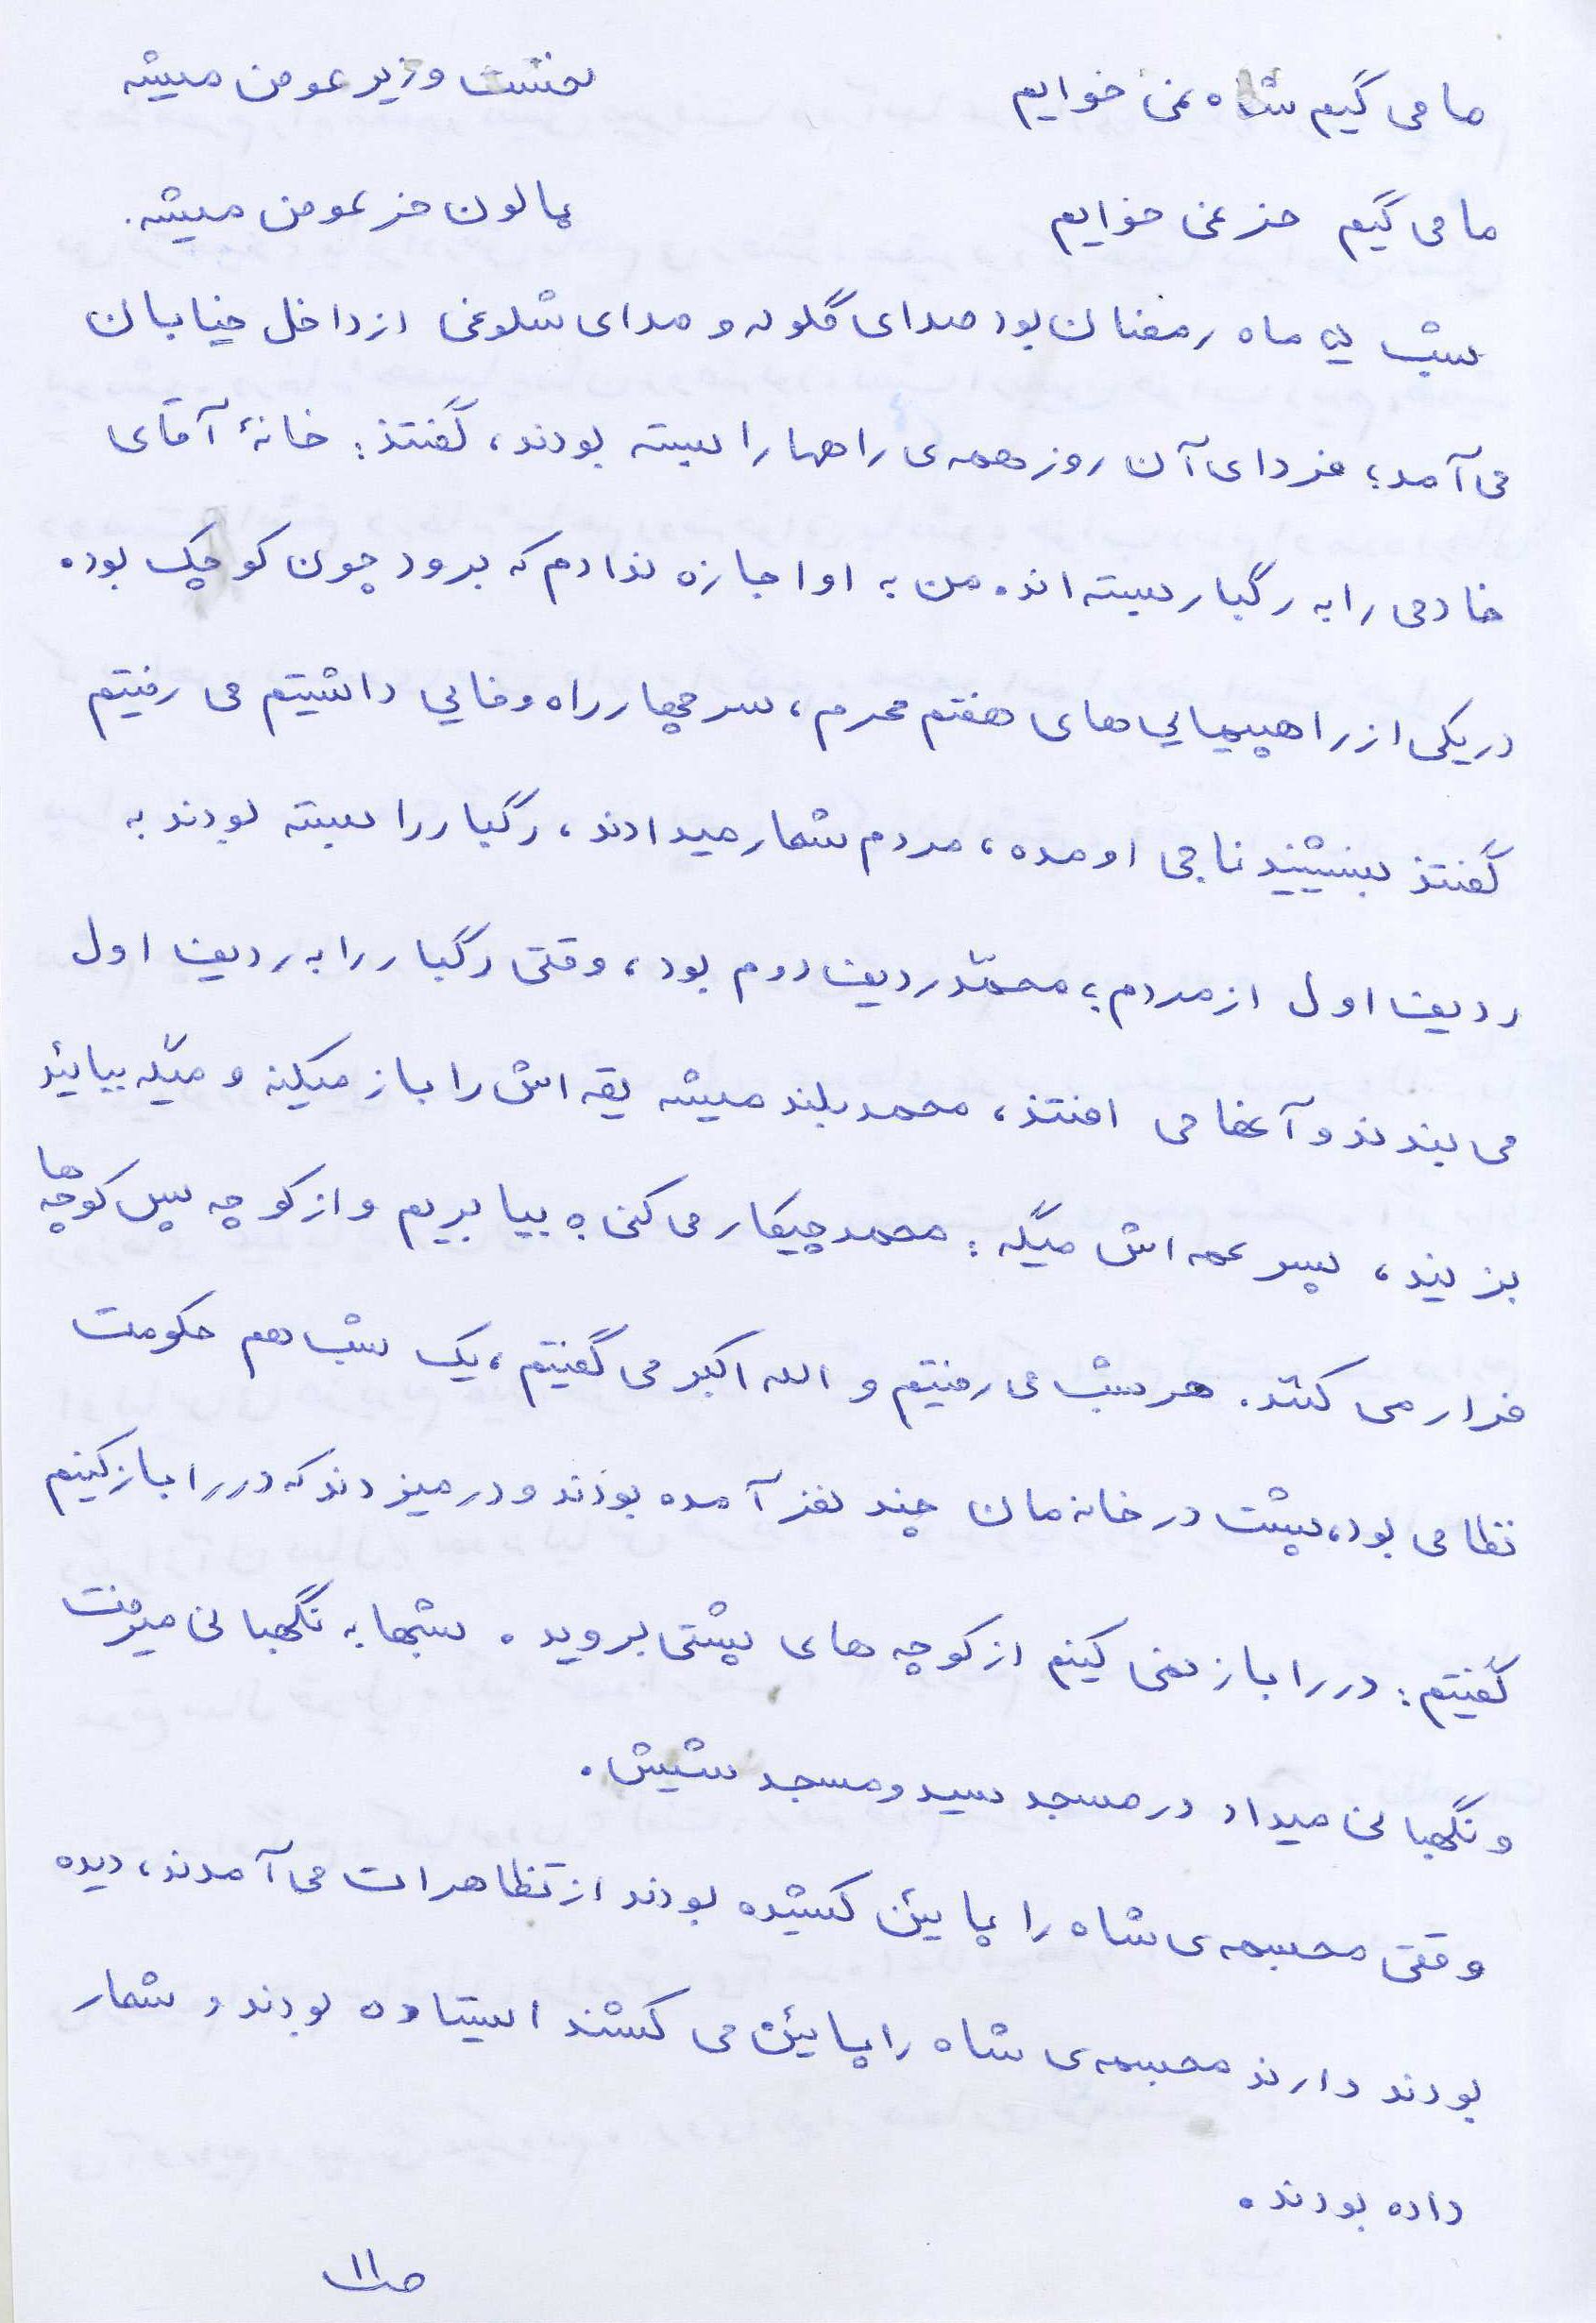 ما می گیم شاه نمی خوایم نخست وزیر عومن میشه
ما می گیم خر نمی خوایم پالون خر عومن میشه.
شب ۵ ماه رمضان بود صدای گلوله و صدای شلوغی از داخل خیابان
می آمد؛ فردای آن روز همه ی راهها را بسته بودند، گفتند: خانهٔ آقای
خادمی را به رگبار بسته اند. من به او اجازه ندادم که برود چون کوچک بود.
در یکی از راهپیمایی های هفتم محرم، سر چهار راه وفایی داشتیم می رفتیم
گفتند بنشینید ناجی اومده، مردم شعار میدادند، رگبار را بسته بودند به
ردیف اول از مردم؛ محمّد ردیف دوم بود، وقتی رگبار را به ردیف اول
می بندند و آنها می افتند، محمد بلند میشه یقه اش را باز میکنه و میگه بیائید
بزنید، پسر عمه اش میگه: محمد چیکار می کنی؟ بیا بریم و از کوچه پس کوچه ها
فرار می کنند. هر شب می رفتیم و الله اکبر می گفتیم، یک شب هم حکومت
نظامی بود، پشت در خانه مان چند نفر آمده بودند و در میزدند که در را باز کنیم
گفتیم: در را باز نمی کنیم از کوچه های پشتی بروید. شبها به نگهبانی میرفت
و نگهبانی میداد در مسجد سید و مسجد شیش.
وقتی مجسمه ی شاه را پایین کشیده بودند از تظاهرات می آمدند، دیده
بودند دارند مجسمه ی شاه را پائین می کشند ایستاده بودند و شعار
داده بودند.
ص۱۱